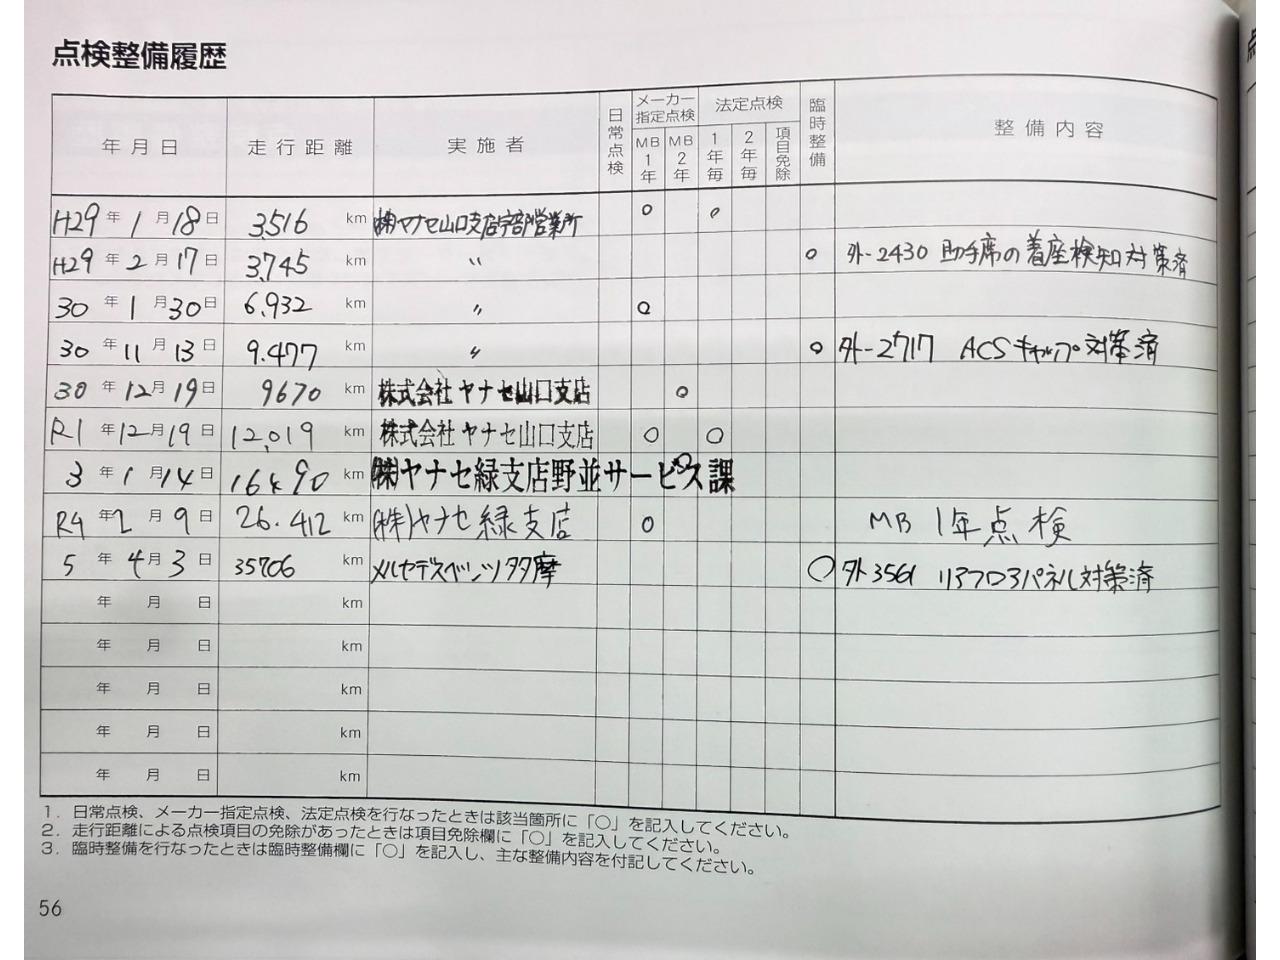 点検整備履歴
年月日 走行距離 実施者 日常点検 メーカー指定点検 MB1年 MB2年 法定点検 1年毎 2年毎 項目免除 臨時整備 整備内容
H29年1月18日 3,516 km ㈱ヤナセ山口支店宇部営業所 ○ ○
H29年2月17日 3,745 km 〃 ○ 外-2430 助手席の着座検知対策済
30年1月30日 6,932 km 〃 ○
30年11月13日 9,477 km 〃 ○ 外-2717 ACSキャップ対策済
30年12月19日 9670 km 株式会社ヤナセ山口支店 ○
R1年12月19日 12,019 km 株式会社ヤナセ山口支店 ○ ○
3年1月14日 16,490 km ㈱ヤナセ緑支店野並サービス課 ○
R4年2月9日 26.412 km (株)ヤナセ緑支店 ○ MB 1年点検
5年4月3日 35706 km メルセデスベンツ多摩 ○ 外3561 リアフロアパネル対策済
年 月 日 km
年 月 日 km
年 月 日 km
年 月 日 km
年 月 日 km
1. 日常点検、メーカー指定点検、法定点検を行なったときは該当箇所に「○」を記入してください。
2. 走行距離による点検項目の免除があったときは項目免除欄に「○」を記入してください。
3. 臨時整備を行なったときは臨時整備欄に「○」を記入し、主な整備内容を付記してください。
56